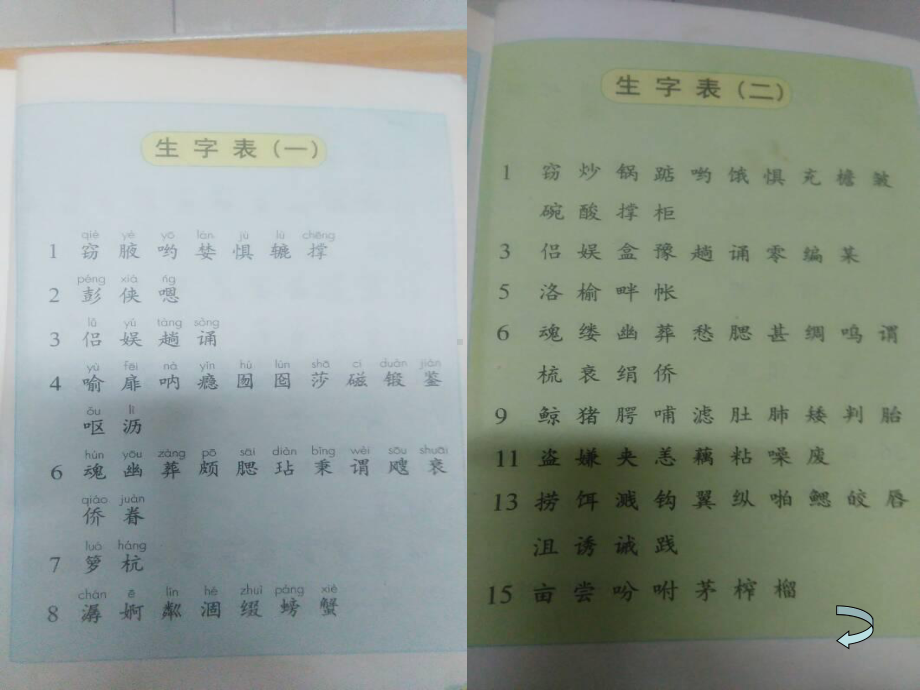 生字表(一)
qiè yè yō lán jù lù chēng
1 窃 腋 哟 婪 惧 辘 撑
péng xiá ńg
2 彭 侠 嗯
lǚ yú tàng sòng
3 侣 娱 趟 诵
yù fēi nà yǐn hú lún shā cí duàn jiàn
4 喻 扉 呐 瘾 囫 囵 莎 磁 锻 鉴
ǒu lì
呕 沥
hún yōu zàng pō sāi diàn bǐng wèi sōu shuāi
6 魂 幽 葬 颇 腮 玷 秉 谓 飕 衰
qiáo juàn
侨 眷
luó háng
7 箩 杭
chán ē lín hé zhuì páng xiè
8 潺 婀 粼 涸 缀 螃 蟹
生字表(二)
1 窃 炒 锅 踮 哟 饿 惧 充 檐 皱
碗 酸 撑 柜
3 侣 娱 盒 豫 趟 诵 零 编 某
5 洛 榆 畔 帐
6 魂 缕 幽 葬 愁 腮 甚 绸 呜 谓
梳 衰 绢 侨
9 鲸 猪 腭 哺 滤 肚 肺 矮 判 胎
11 盗 嫌 夹 恙 藕 粘 噪 废
13 捞 饵 溅 钩 翼 纵 啪 鳃 皎 唇
沮 诱 诫 践
15 亩 尝 吩 咐 茅 榨 榴